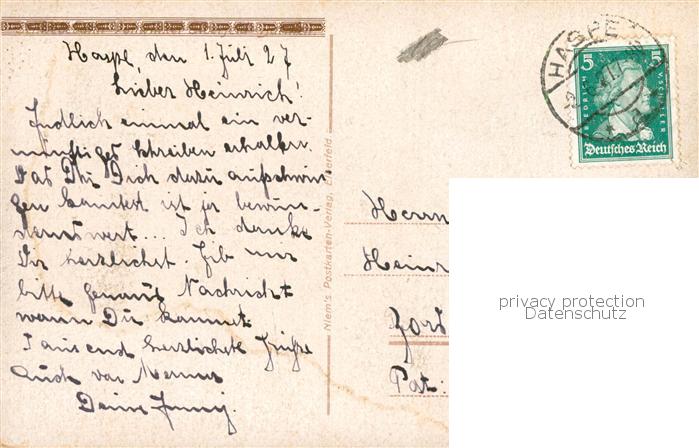 Haspe, den 1. Juli 27
Lieber Heinrich!
Endlich einmal ein ver-
nünftiges Schreiben erhalten.
Das Du Dich dazu aufschwin
gen konntest ist ja bewun-
dernswert... Ich danke
Dir herzlichst. Gib mir
bitte genaue Nachricht
wann Du kommst.
Tausend herzlichste Grüße
auch von
Deine
Niem's Postkarten-Verlag, Elberfeld
HASPE
5 5
FRIEDRICH V SCHILLER
Deutsches Reich
Herrn
Heinr
Pat:
privacy protection
Datenschutz